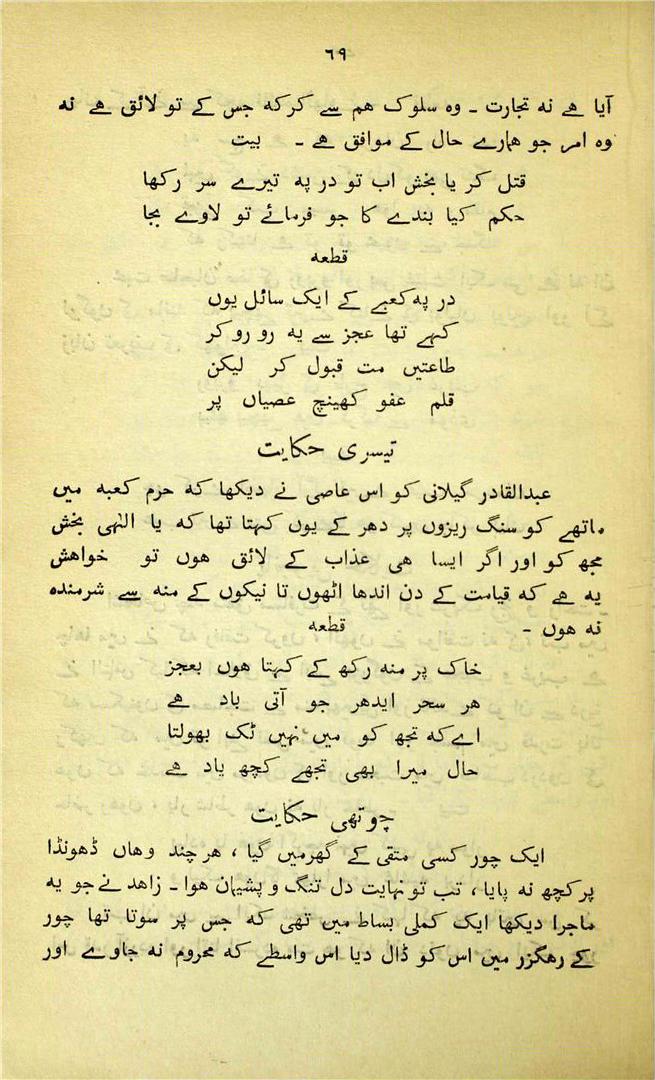 ٦٩
آیا ھے نہ تجارت ۔ وہ سلوک ھم سے کرکہ جس کے تو لائق ھے نہ
وہ امر جو ھمارے حال کے موافق ھے ۔ بیت
قتل کر یا بخش اب تو در پہ تیرے سر رکھا
حکم کیا بندے کا جو فرمائے تو لاوے بجا
قطعہ
در پہ کعبے کے ایک سائل یوں
کہے تھا عجز سے یہ رو رو کر
طاعتیں مت قبول کر لیکن
قلم عفو کھینچ عصیاں پر
تیسری حکایت
عبدالقادر گیلانی کو اس عاصی نے دیکھا کہ حرم کعبہ میں
ماتھے کو سنگ ریزوں پر دھر کے یوں کہتا تھا کہ یا الٰہی بخش
مجھ کو اور اگر ایسا ھی عذاب کے لائق ھوں تو خواھش
یہ ھے کہ قیامت کے دن اندھا اٹھوں تا نیکوں کے منہ سے شرمندہ
نہ ھوں ۔ قطعہ
خاک پر منہ رکھ کے کہتا ھوں بعجز
ھر سحر ایدھر جو آتی باد ھے
اے کہ تجھ کو میں نہیں ٹک بھولتا
حال میرا بھی تجھے کچھ یاد ھے
چوتھی حکایت
ایک چور کسی متقی کے گھر میں گیا ، ھر چند وھاں ڈھونڈا
پر کچھ نہ پایا ، تب تو نہایت دل تنگ و پشیمان ھوا ۔ زاھد نے جو یہ
ماجرا دیکھا ایک کملی بساط میں تھی کہ جس پر سوتا تھا چور
کے رھگزر میں اس کو ڈال دیا اس واسطے کہ محروم نہ جاوے اور